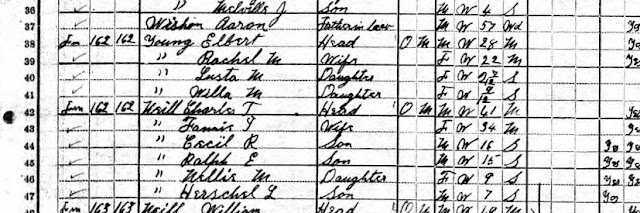 36 " Melville J Son M W 4 S
37 Wishon Aaron Father in law M W 57 Wd
38 Fm 162 162 Young Elbert Head O M M W 28 M
39 " Rachel M Wife F W 22 M
40 " Lusta M Daughter F W S
41 " Willa M Daughter F W S
42 Fm 162 162 Neill Charles T Head O M M W 41 M
43 " Fannie Wife F W 34 M
44 " Cecil R Son M W 16 S
45 " Ralph E Son M W 15 S
46 " Willie M Daughter F W 9 S
47 " Herschel L Son M W 7 S
48 Fm 163 163 Neill William Head O M W M